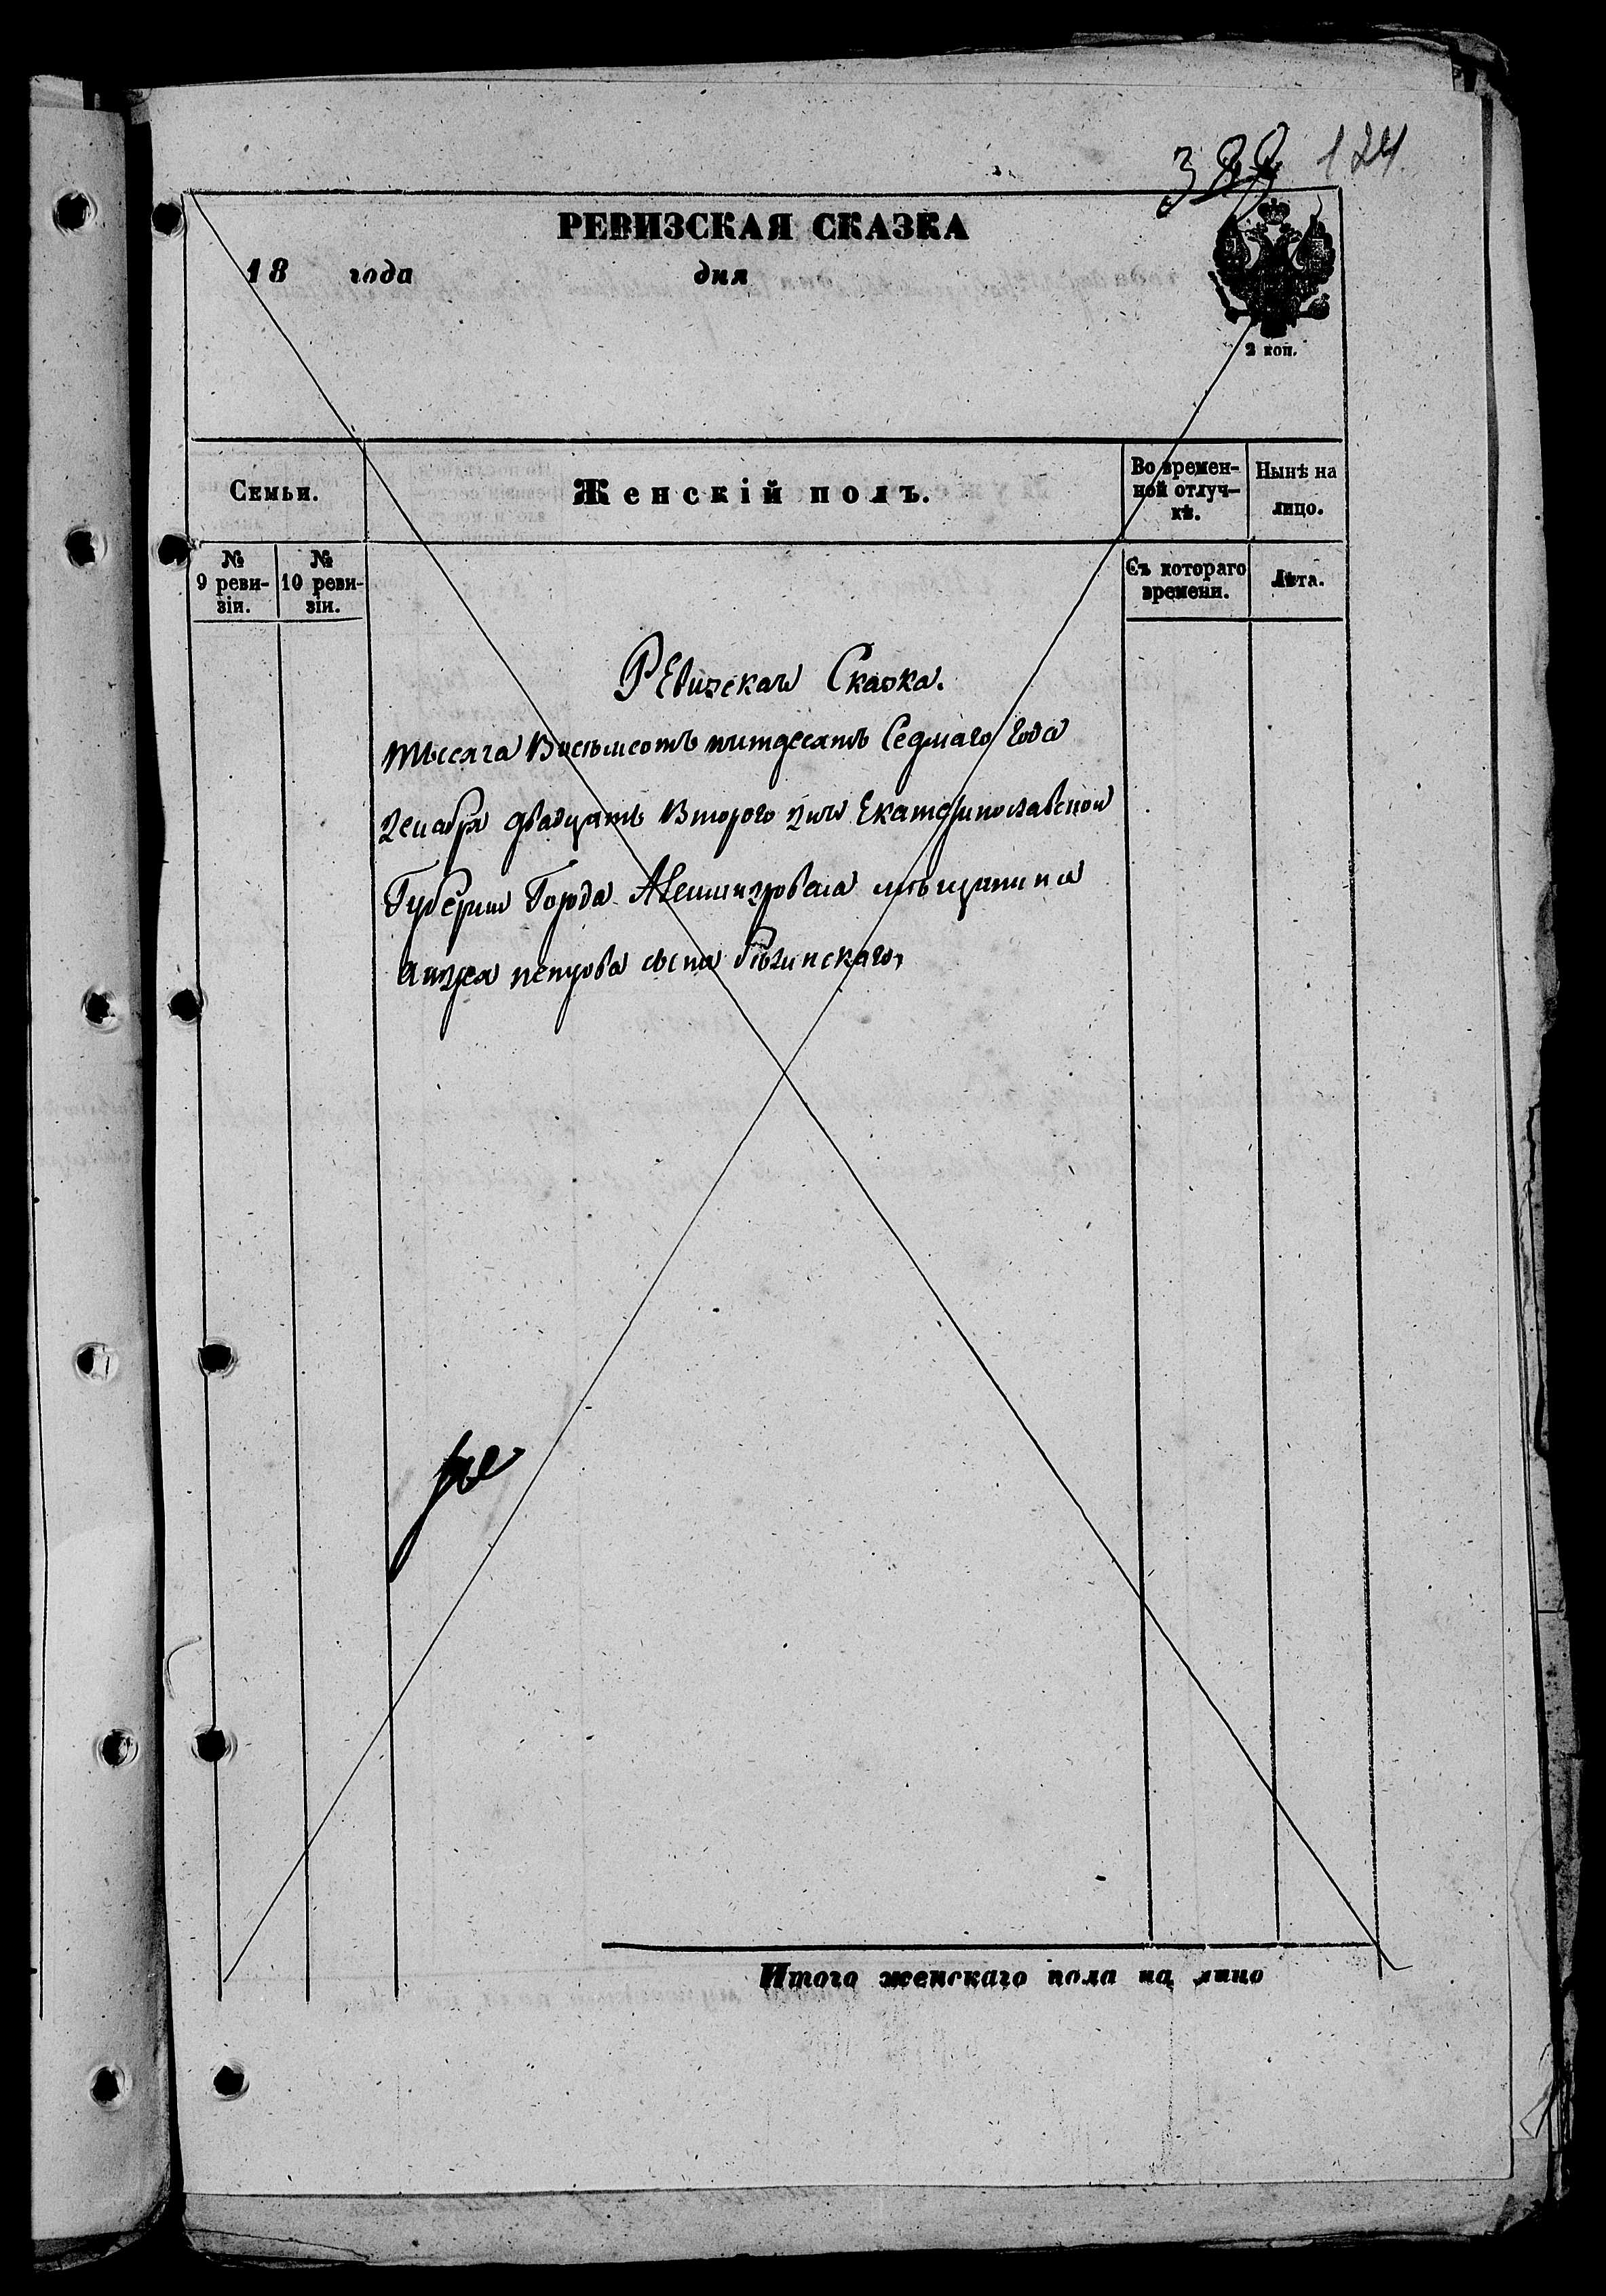 124
РЕВИЗСКАЯ СКАЗКА
18 года дня
2 коп.
Семьи.
Женскій полъ.
Во времен-
ной отлуч-
кѣ.
Нынѣ на
лицо.
№
9 реви-
зіи.
№
10 реви-
зіи.
Съ котораго
времени.
Лѣта.
Ревизская Сказка.
тысяча Восемьсотъ пятдесятъ Седмаго Года
Декабря двадцать Второго дня Екатеринославской
Губернии Города Александровска мѣщанина
Андрея петрова сына
Итого женскаго пола на лицо